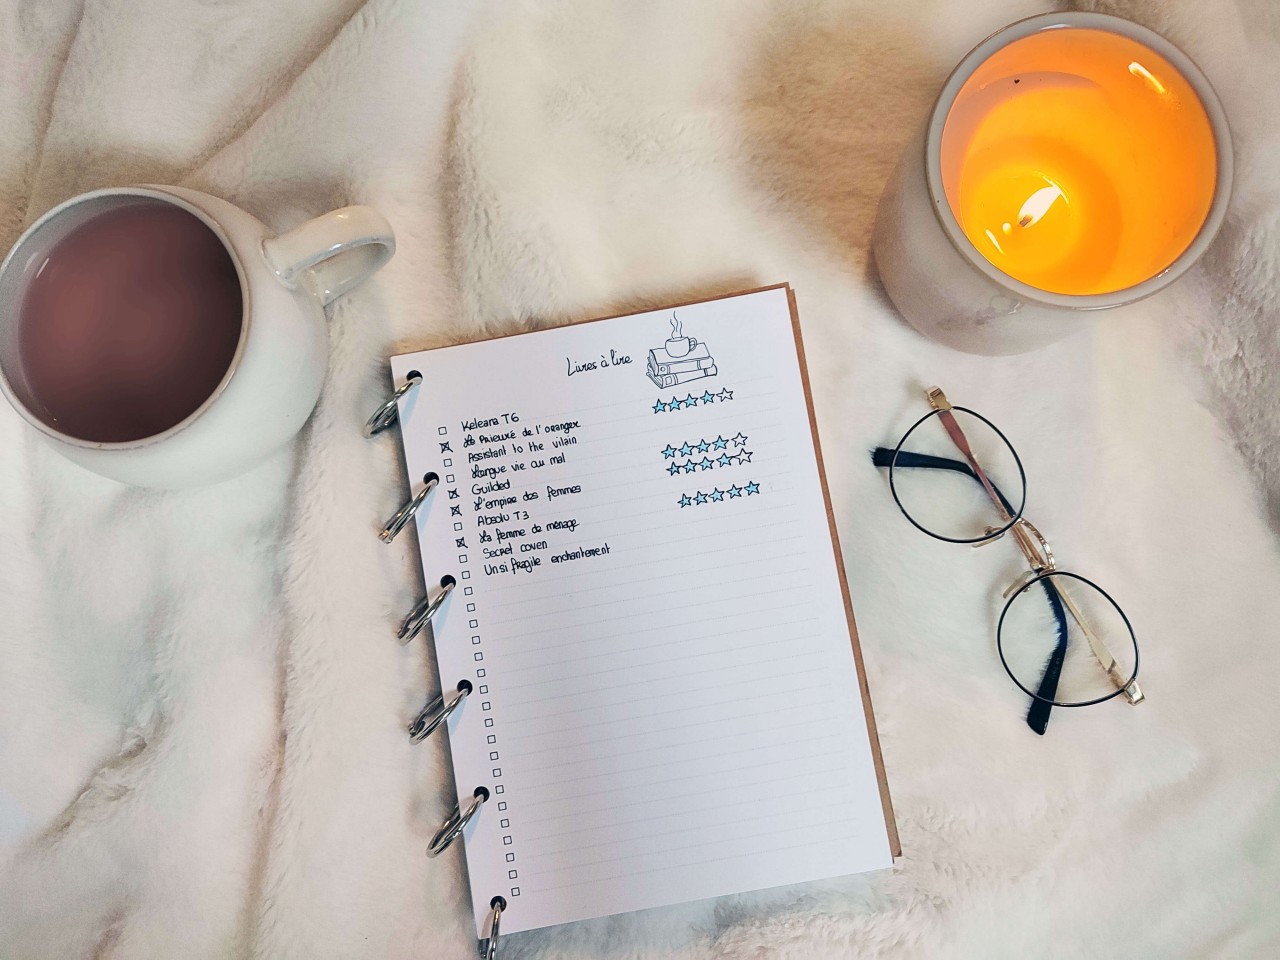 Livres à lire
Keleana T6
Le Prieuré de l'oranger
Assistant to the vilain
Longue vie au mal
Guilded
L'empire des femmes
Absolu T3
La femme de ménage
Secret coven
Un si fragile enchantement